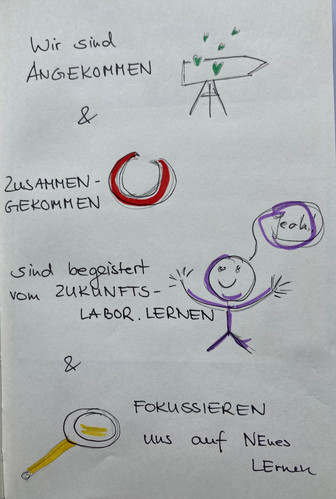 Wir sind
ANGEKOMMEN
&
ZUSAMMEN-
GEKOMMEN
Yeah!
sind begeistert
vom ZUKUNFTS-
LABOR.LERNEN
&
FOKUSSIEREN
uns auf NEues
LErnen